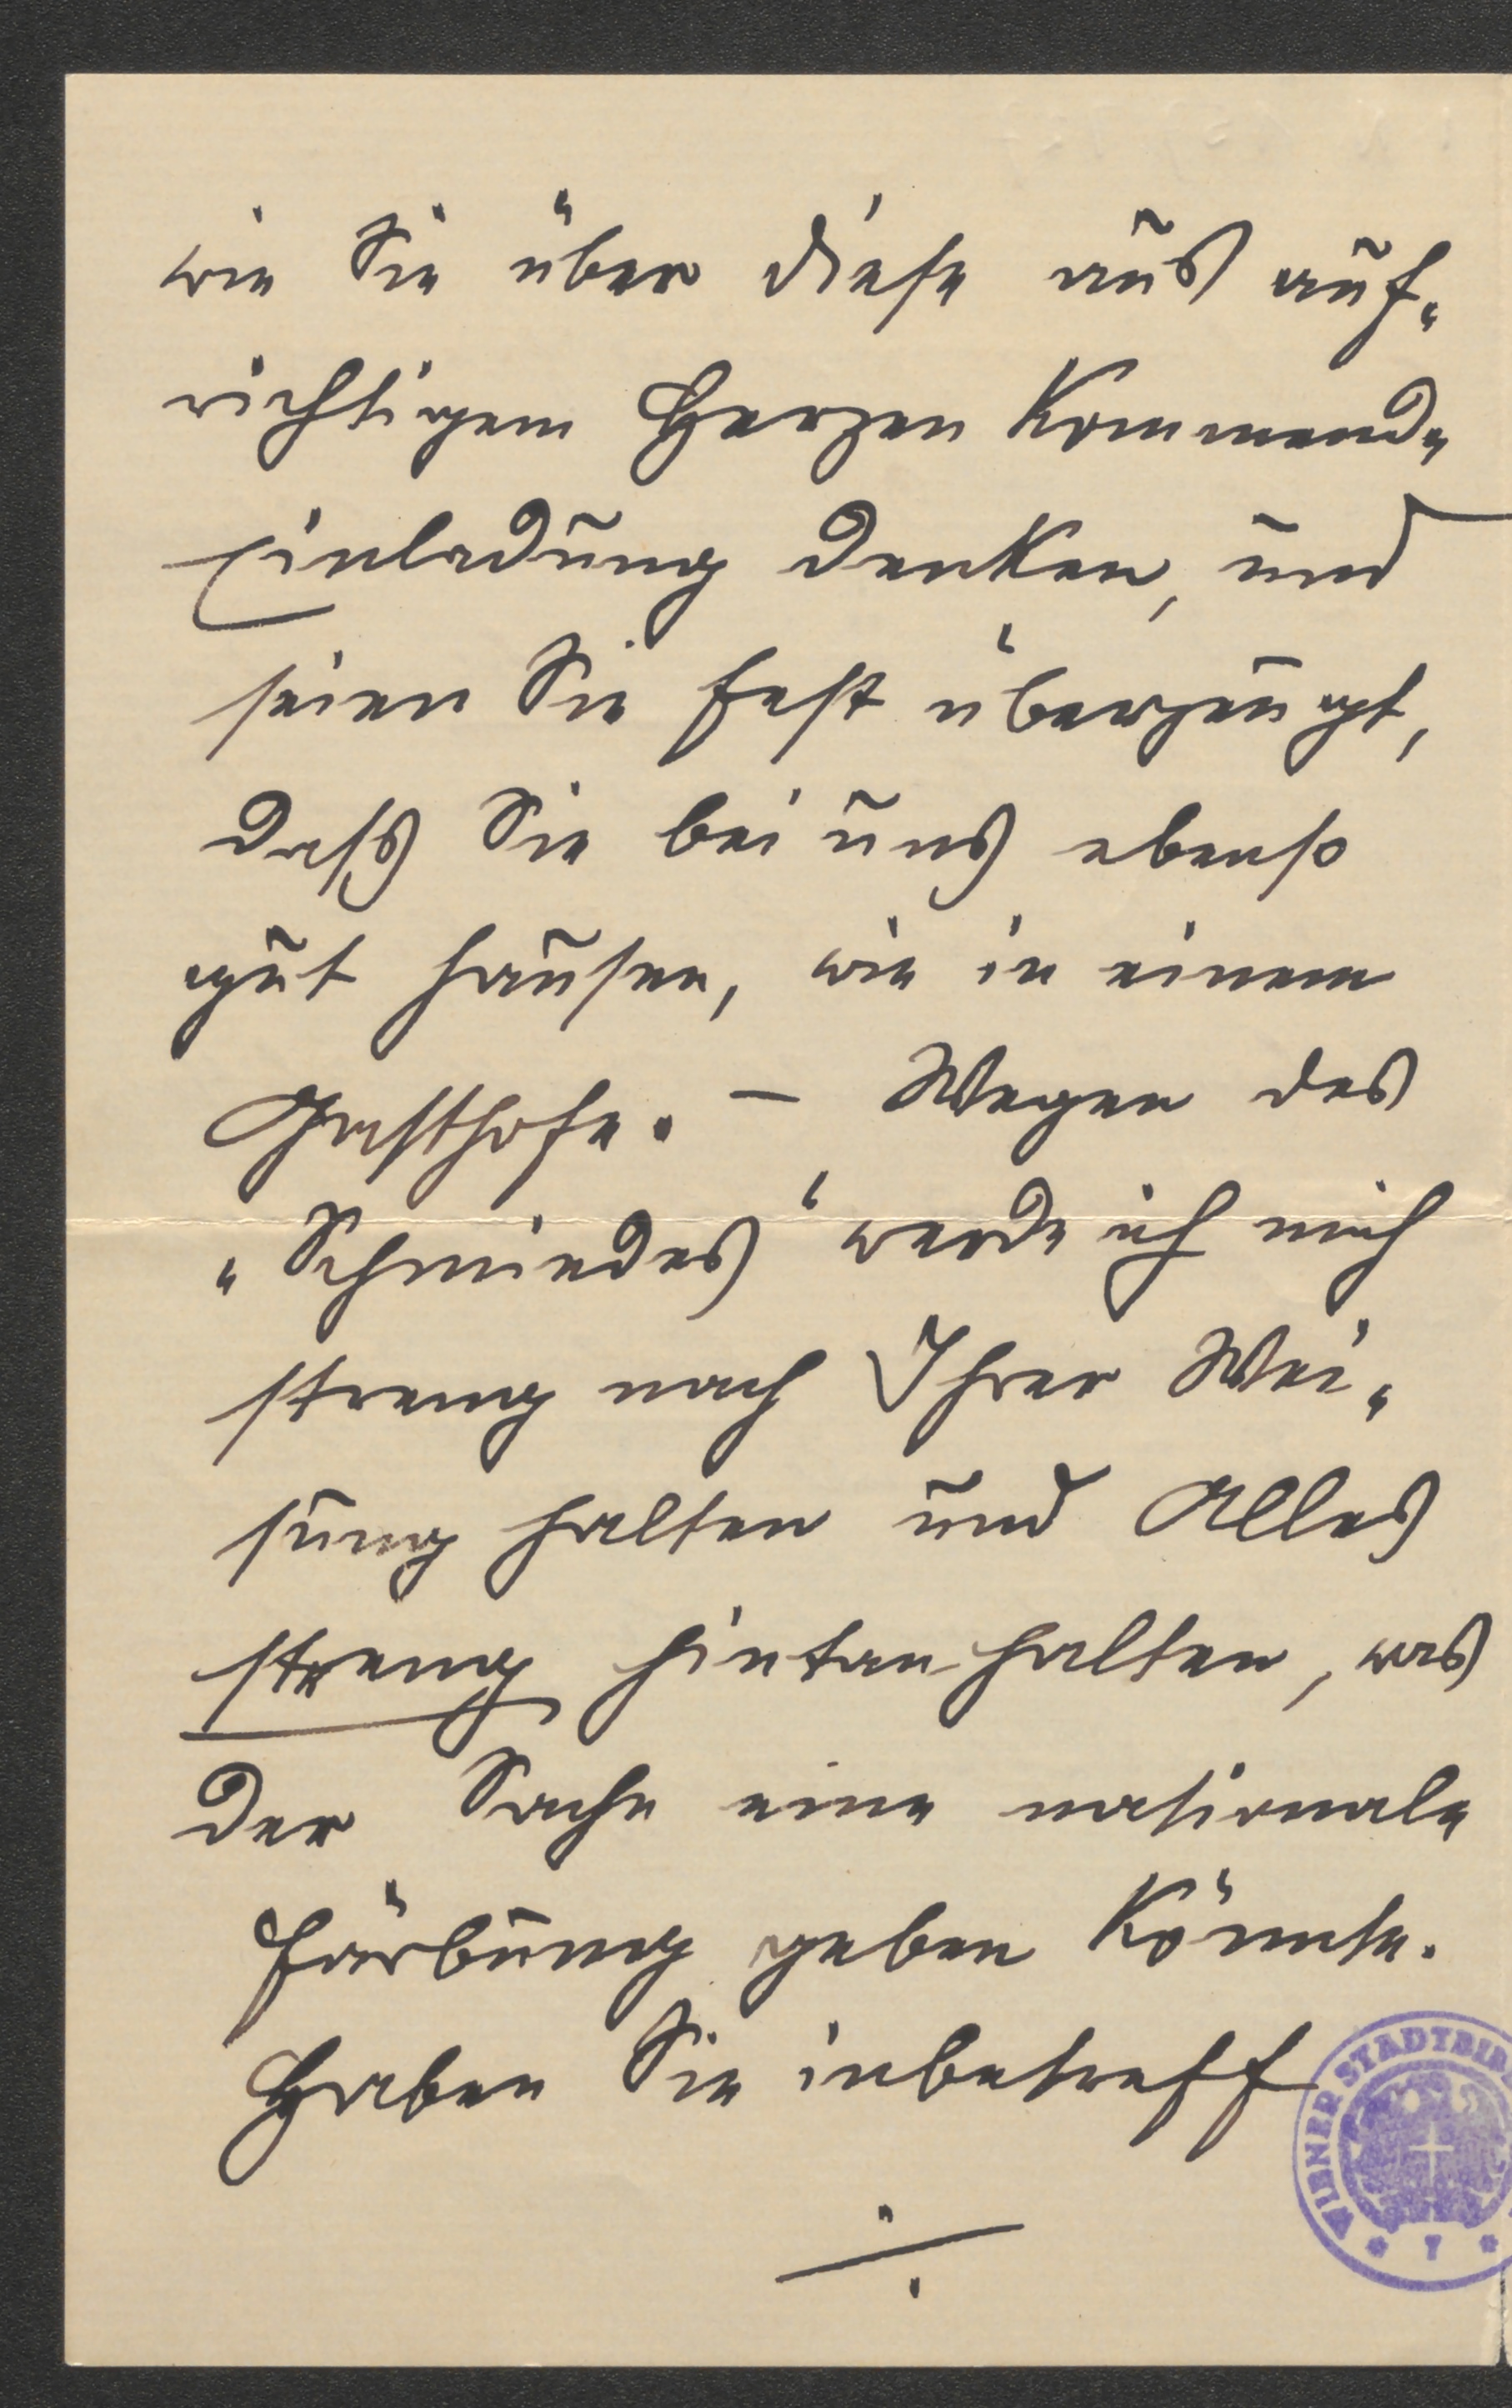 wie Sie über diese aus auf-
richtigem Herzen kommende
Einladung denken, und
seien Sie fest überzeugt,
daß Sie bei uns ebenso
gut hausen, wie in einem
Gasthofe. – Wegen des
„Schmiedes“ werde ich mich
streng nach Ihrer Wei-
sung halten und Alles
streng hintanhalten, was
der Sache eine nationale
Färbung geben könnte.
Haben Sie inbetreff
WIENER STADTBIB
* 7 *
./.